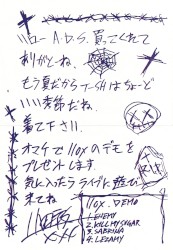 ハロー A.D.S. 買ってくれて
ありがとね。
もう夏だから T-SHはちょーど
いい季節だね、
着て下さい。
オマケで 110xのデモを
プレゼントします
気に入ったらライブに遊び
来てね
R.I.P
110x. DEMO
1. ENEMY
2. KILL MY SUGAR
3. SABRINA
4. LEZAMY